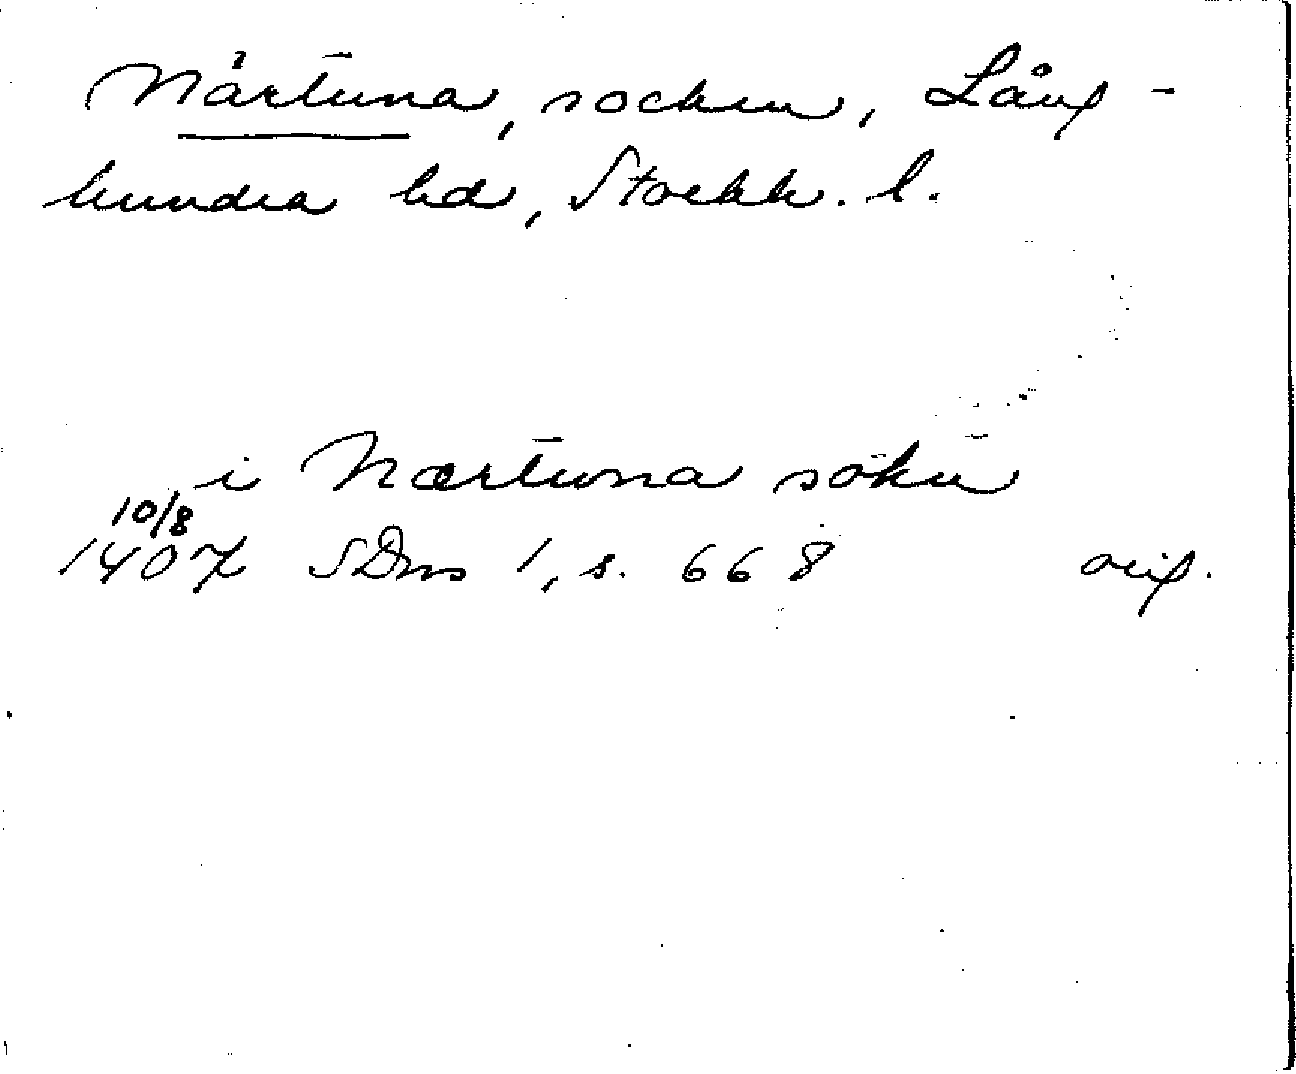 Närtuna, socken, Lång-
hundra hd, Stockh. l.
i Nærtuna sokn
10/8
1407 SDns 1, s. 668 orig.